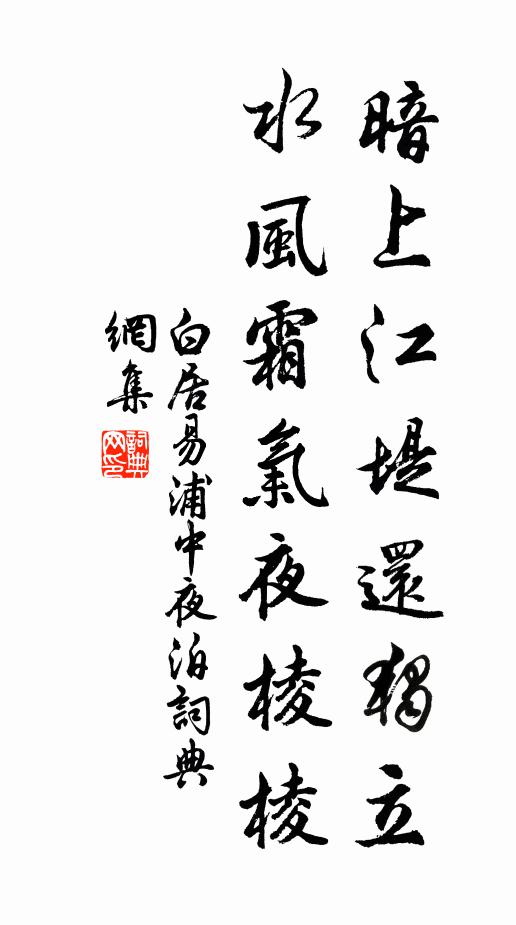 暗上江堤還獨立
水風霜氣夜棱棱
白居易浦中夜泊詞典
網集
詞典网印